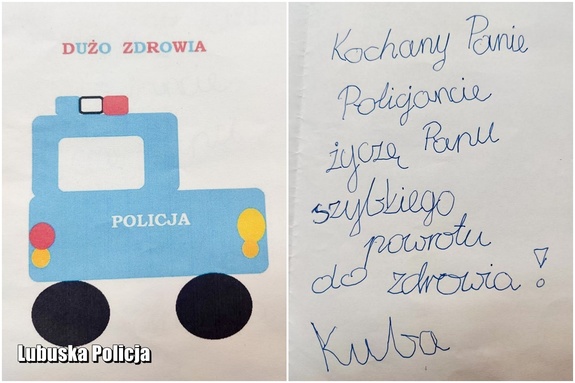 DUŻO ZDROWIA
POLICJA
Lubuska Policja
Kochany Panie
Policjancie
życzę Panu
szybkiego
powrotu
do zdrowia!
Kuba